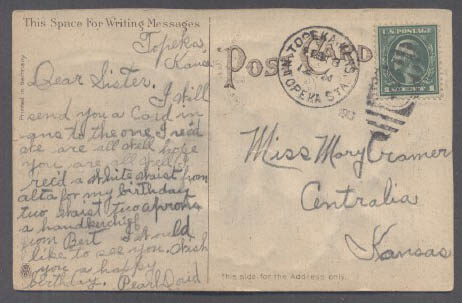 This Space For Writing Messages
Topeka,
Kansas
Dear Sister.
I will
send you a Card in
ans to the one I rec'd
ate are all well hope
you are all well I
rec'd a white waist from
alta for my birthday
two waist two aprons
a handkerchief
from Bert I should
like to see you. Wish
you a happy
birthday. Pearl
Printed in Germany
Post Card
TOPEKA
TOPEKA STA.
1913
U.S. POSTAGE
1 CENT 1
Miss Mary Cramer
Centralia
Kansas
This side for the Address only.